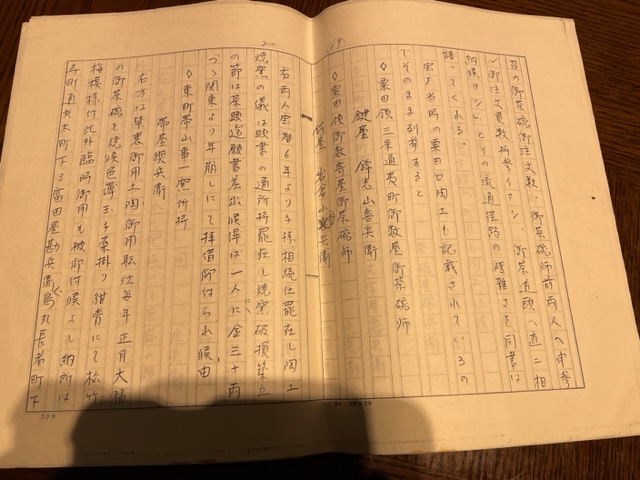 19
辺の御茶碗御注文数、御茶碗師前両人へ申参
り御注文員数持参イタシ、御茶道頭へ直ニ相
納候ヨシ」とその流通径路の複雑さを同書は
語ってくれる。
宝万当時の粟田口陶工も記載されているの
でそのまま列挙すると
◇粟田領三条通夷町御数屋御茶碗師
鍵屋 錦光山喜兵衛
◇粟田領御数寄屋御茶碗師
岩倉山吉兵衛
20
右両人宝暦6年より子孫相続仕罷在し陶工
焼窯の儀は頭書の通所持罷在し焼窯破損築立
の節は茶頭迄願書差出候得は一人に金三十両
づゝ関東より年崩しにて拝借仰付られ候由
◇東町帯山事一窯所持
帯屋與兵衛
右方は禁裏御用土陶御用取仕毎年正月大福
の御茶碗を焼候色薄玉子薬掛り紺青にて松竹
梅模様付此外臨時御用も被仰付候よし納所は
寺町通丸太町下ル富田屋勘兵衛烏丸長者町下